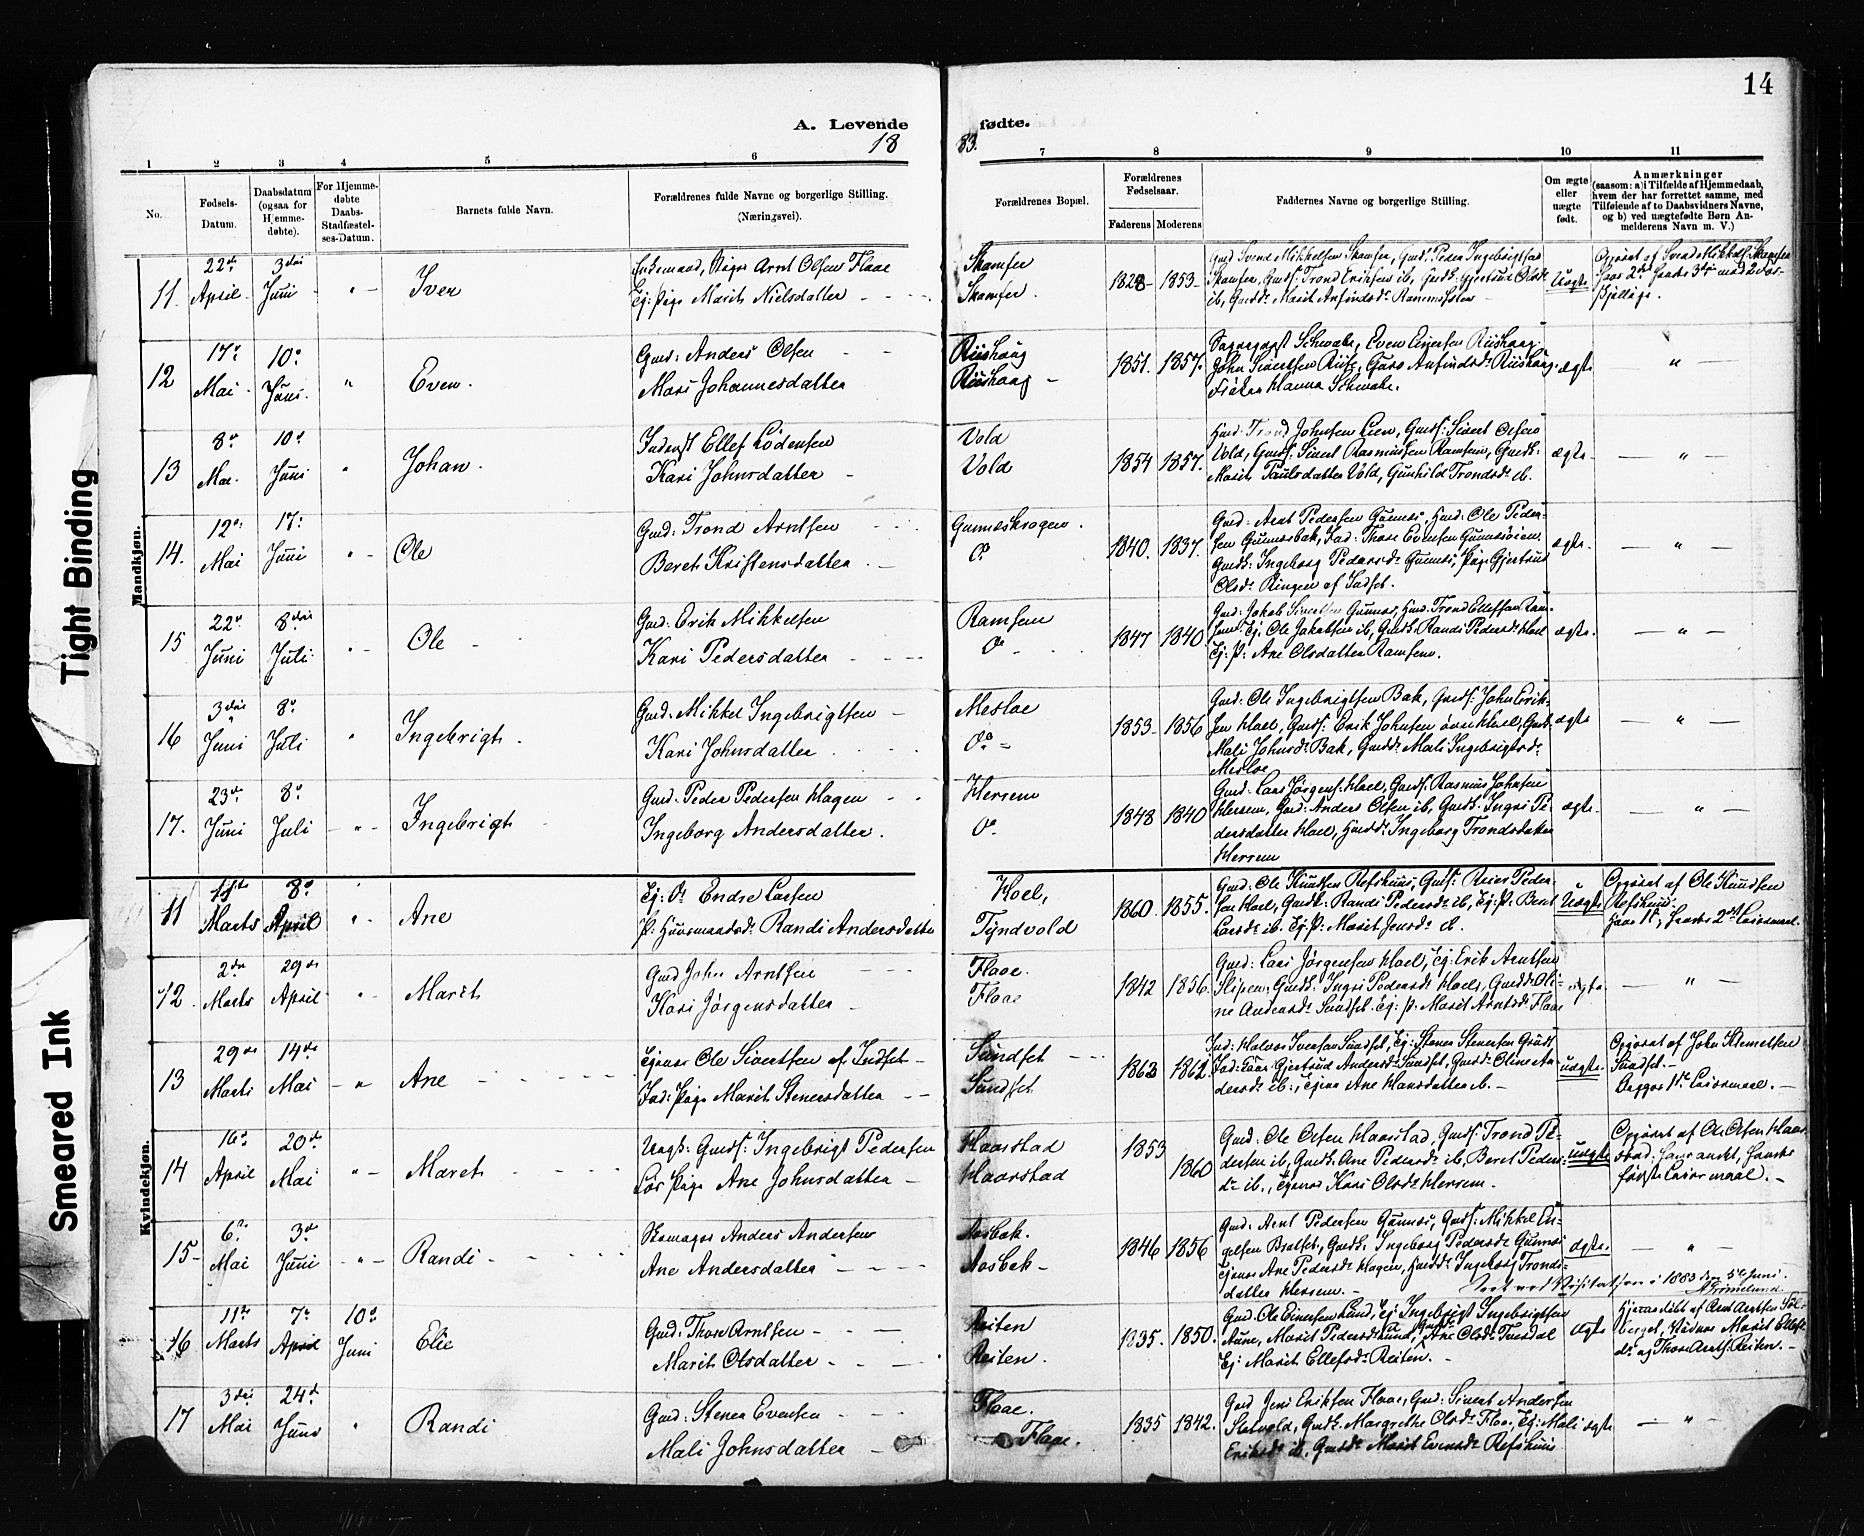 14
A. Levende fødte.
18 83.
1 2 3 4 5 6 7 8 9 10 11
No.
Fødsels-Datum.
Daabsdatum (ogsaa for Hjemme-døbte).
For Hjemme-døbte Daabs-Stadfæstel-ses-Datum.
Barnets fulde Navn.
Forældrenes fulde Navne og borgerlige Stilling. (Næringsvei).
Forældrenes Bopæl.
Forældrenes Fødselsaar.
Faderens Moderens
Faddernes Navne og borgerlige Stilling.
Om ægte eller uægte født.
Anmærkninger
(saasom: a) i Tilfælde af Hjemmedaab,
hvem der har forrettet samme, med
Tilføiende af to Daabsvidners Navne,
og b) ved uægtefødte Børn An-
melderens Navn m. V.)
Mandkjøn.
11. 22de April 3die Juni - " - Iver
Enkemand, Arnt Olsen Flaae
Ej: Pige Marit Nielsdatter
Skamfer
Skamfer.
1828 - 1853 -
Gmd Svend Mikkelsen Skamfer, Gmd: Peder Ingebrigtsen
Skamfer, Gmds: Trond Eriksen ib, Gmdk: Gjertrud Olsdr
ib, Gmdd: Marit Anfindsdr
Uægte
Opgivet af Svend Mikkels. Skamfer
12 17. Mai 10. Juni. " Even.
Gmd: Anders Olsen
Mari Johannesdatter
Riishaug
Riishaug
1851. 1857.
Schwabe, Even Einersen Riishaug,
John Sivertsen Riise, Guro Anfindsdr Riishaug.
Frøken Hanna Schwabe.
ægte — " —
13 8. Mai. 10. Juni " Johan.
Inderst Ellef Lodensen
Kari Johnsdatter
Vold
Vold
1854 1857.
Hmd: Trond Johnsen Lien, Gmds: Sivert Olsen
Vold, Gmds: Sivert Rasmussen Ramsem, Gmdk:
Marit Paulsdatter Vold, Gunhild Trondsdr ib.
ægte — " —
14. 12. Mai 17. Juni " - Ole
Gmd: Trond Arntsen
Beret Kristensdatter
Gunneskrogen.
Do
1840. 1837.
Gmd: Arnt Pedersen Gunnes, Hmd: Ole Peder-
sen Gunnesbak, Ind: Thore Evensen Gunnesøien
Gmdk: Ingeborg Pedersdr Gunnes, Pige Gjertrud
Olsdr Ringen af Indset.
ægte. — " —
15 22. Juni 8die Juli " - Ole
Gmd: Erik Mikkelsen
Kari Pedersdatter
Ramsem
Do
1847 1840
Gmd: Jakob Sivertsen Gunnes, Hmd: Trond Ellefsen Ram-
sem, Ej: Ole Jakobsen ib, Gmdk: Randi Pedersdr Hoel
Ej: P: Ane Olsdatter Ramsem.
ægte. — " —
16 3die Juni 8. Juli " Ingebrigt.
Gmd. Mikkel Ingebrigtsen
Kari Johnsdatter.
Mesloe
Do
1853 - 1856
Gmd: Ole Ingebrigtsen Bak, Gmds: John Erik-
sen Hoel, Gmds: Erik Johnsen øvre Hoel, Gmdk
Mali Johnsdr Bak, Gmdd: Mali Ingebrigtsdr
Mesloe
ægte — " —
17. 23de Juni 8. Juli - " - Ingebrigt
Gmd. Peder Pedersen Hagen
Ingeborg Andersdatter.
Herrem
Do
1848 1840
Gmd: Lars Jørgens. Hoel, Gmds: Rasmus Johnsen
Herrem, Gmd: Anders Olsen ib, Gmdk: Ingri Pe-
dersdatter Hoel, Gmdd: Ingeborg Trondsdatter
Herrem
ægte. — " —
Kvindekjøn.
11 Marts 8. April " - Ane
Ej: Endre Larsen
P: Huusmandsdr Randi Andersdatter
Hoel,
Tyndvold
1860. 1855.
Gmd: Ole Knudsen Refshuus, Gmds: Reier Peder-
sen Hoel, Gmdk: Randi Pedersdr ib, Ej: P: Beret
Larsdr ib. Ej: P: Marit Jensdr ib.
Uægte
Opgivet af Ole Knudsen
Refshuus.
12. 2den Marts 29de April " - Marit
Gmd John Arntsen
Kari Jørgensdatter
Flaae.
Flaae
1842 1856.
Gmd: Lars Jørgensen Hoel, Ej: Erik Arntsen
Slipen, Gmdk: Ingri Pedersdr Hoel, Gmdd: Oli-
ne Andersdr Sundset. Ej: P: Marit Arntsdr Flaae
ægte — " —
13 29de Marts 14de Mai - " Ane
Ole Sivertsen af Indset
Ind: Pige Marit Stenersdatter
Sundset
Sundset
1863 1862.
Ind: Halvor Iversen Sundset, Ej: Stener Stenersen
Gjertrud Andersdr Sundset, Gmdd: Oline An-
dersdr ib., Ane Hansdatter ib.
uægte.
Opgivet af John Klemetsen
Sundset. -
Begges 1ste Leiermaal. -
14 16. April 20de Mai " - Maret
Ungk: Gmds: Ingebrigt Pedersen
Pige Ane Johnsdatter
Haarstad
Haarstad
1853 1860
Gmd: Ole Olsen Haarstad, Gmds: Trond Pe-
dersen ib, Gmdk: Ane Pedersdr ib, Beret Peders-
dr ib., Kari Olsdr Herrem.
uægte
Opgivet af Ole Olsen Haar-
stad:
første Leiermaal. -
15 - 6. Mai 3de Juni - " - Randi -
Skomager Anders Andersen
Ane Andersdatter
Aasbak.
Aasbak -
1846 1856
Gmd. Arnt Pedersen Gunnes, Gmds: Mikkel En-
gelsen Bratset, Gmdk: Ingeborg Pedersdr Gunnes
Ane Pedersdr Hagen, Gmdd: Ingeborg Tronds-
datter Herrem. -
ægte. — " —
Visitatsen i 1883 den 5te Juni.
16 11te Marts 7de April 10. Juni Elie
Gmd: Thore Arntsen
Marit Olsdatter
Reiten
Reiten.
1835. 1850.
Gmd Ole Einersen Lund, Ej: Ingebrigt Ingebrigtsen
Aune, Marit Pedersdr Lund, Ane Olsdr
Ej: Marit Ellefsdr Reiten. -
Ægte
Hjemmedøbt af
Marit Ellefs-
dr og Thore Arnts. Reiten. -
17 3die Mai 24de Juni " Randi
Gmd: Stener Evensen
Mali Johnsdatter
Flaae.
Flaae.
1835 1842.
Gmd Jens Eriksen Flaae, Gmd: Sivert Andersen
Gmdk: Margrethe Olsdr Flaae, Ej: Mali
Eriksdr ib. Gmdd: Marit Evensdr Refshuus
ægte — " —
Tight Binding
Smeared Ink